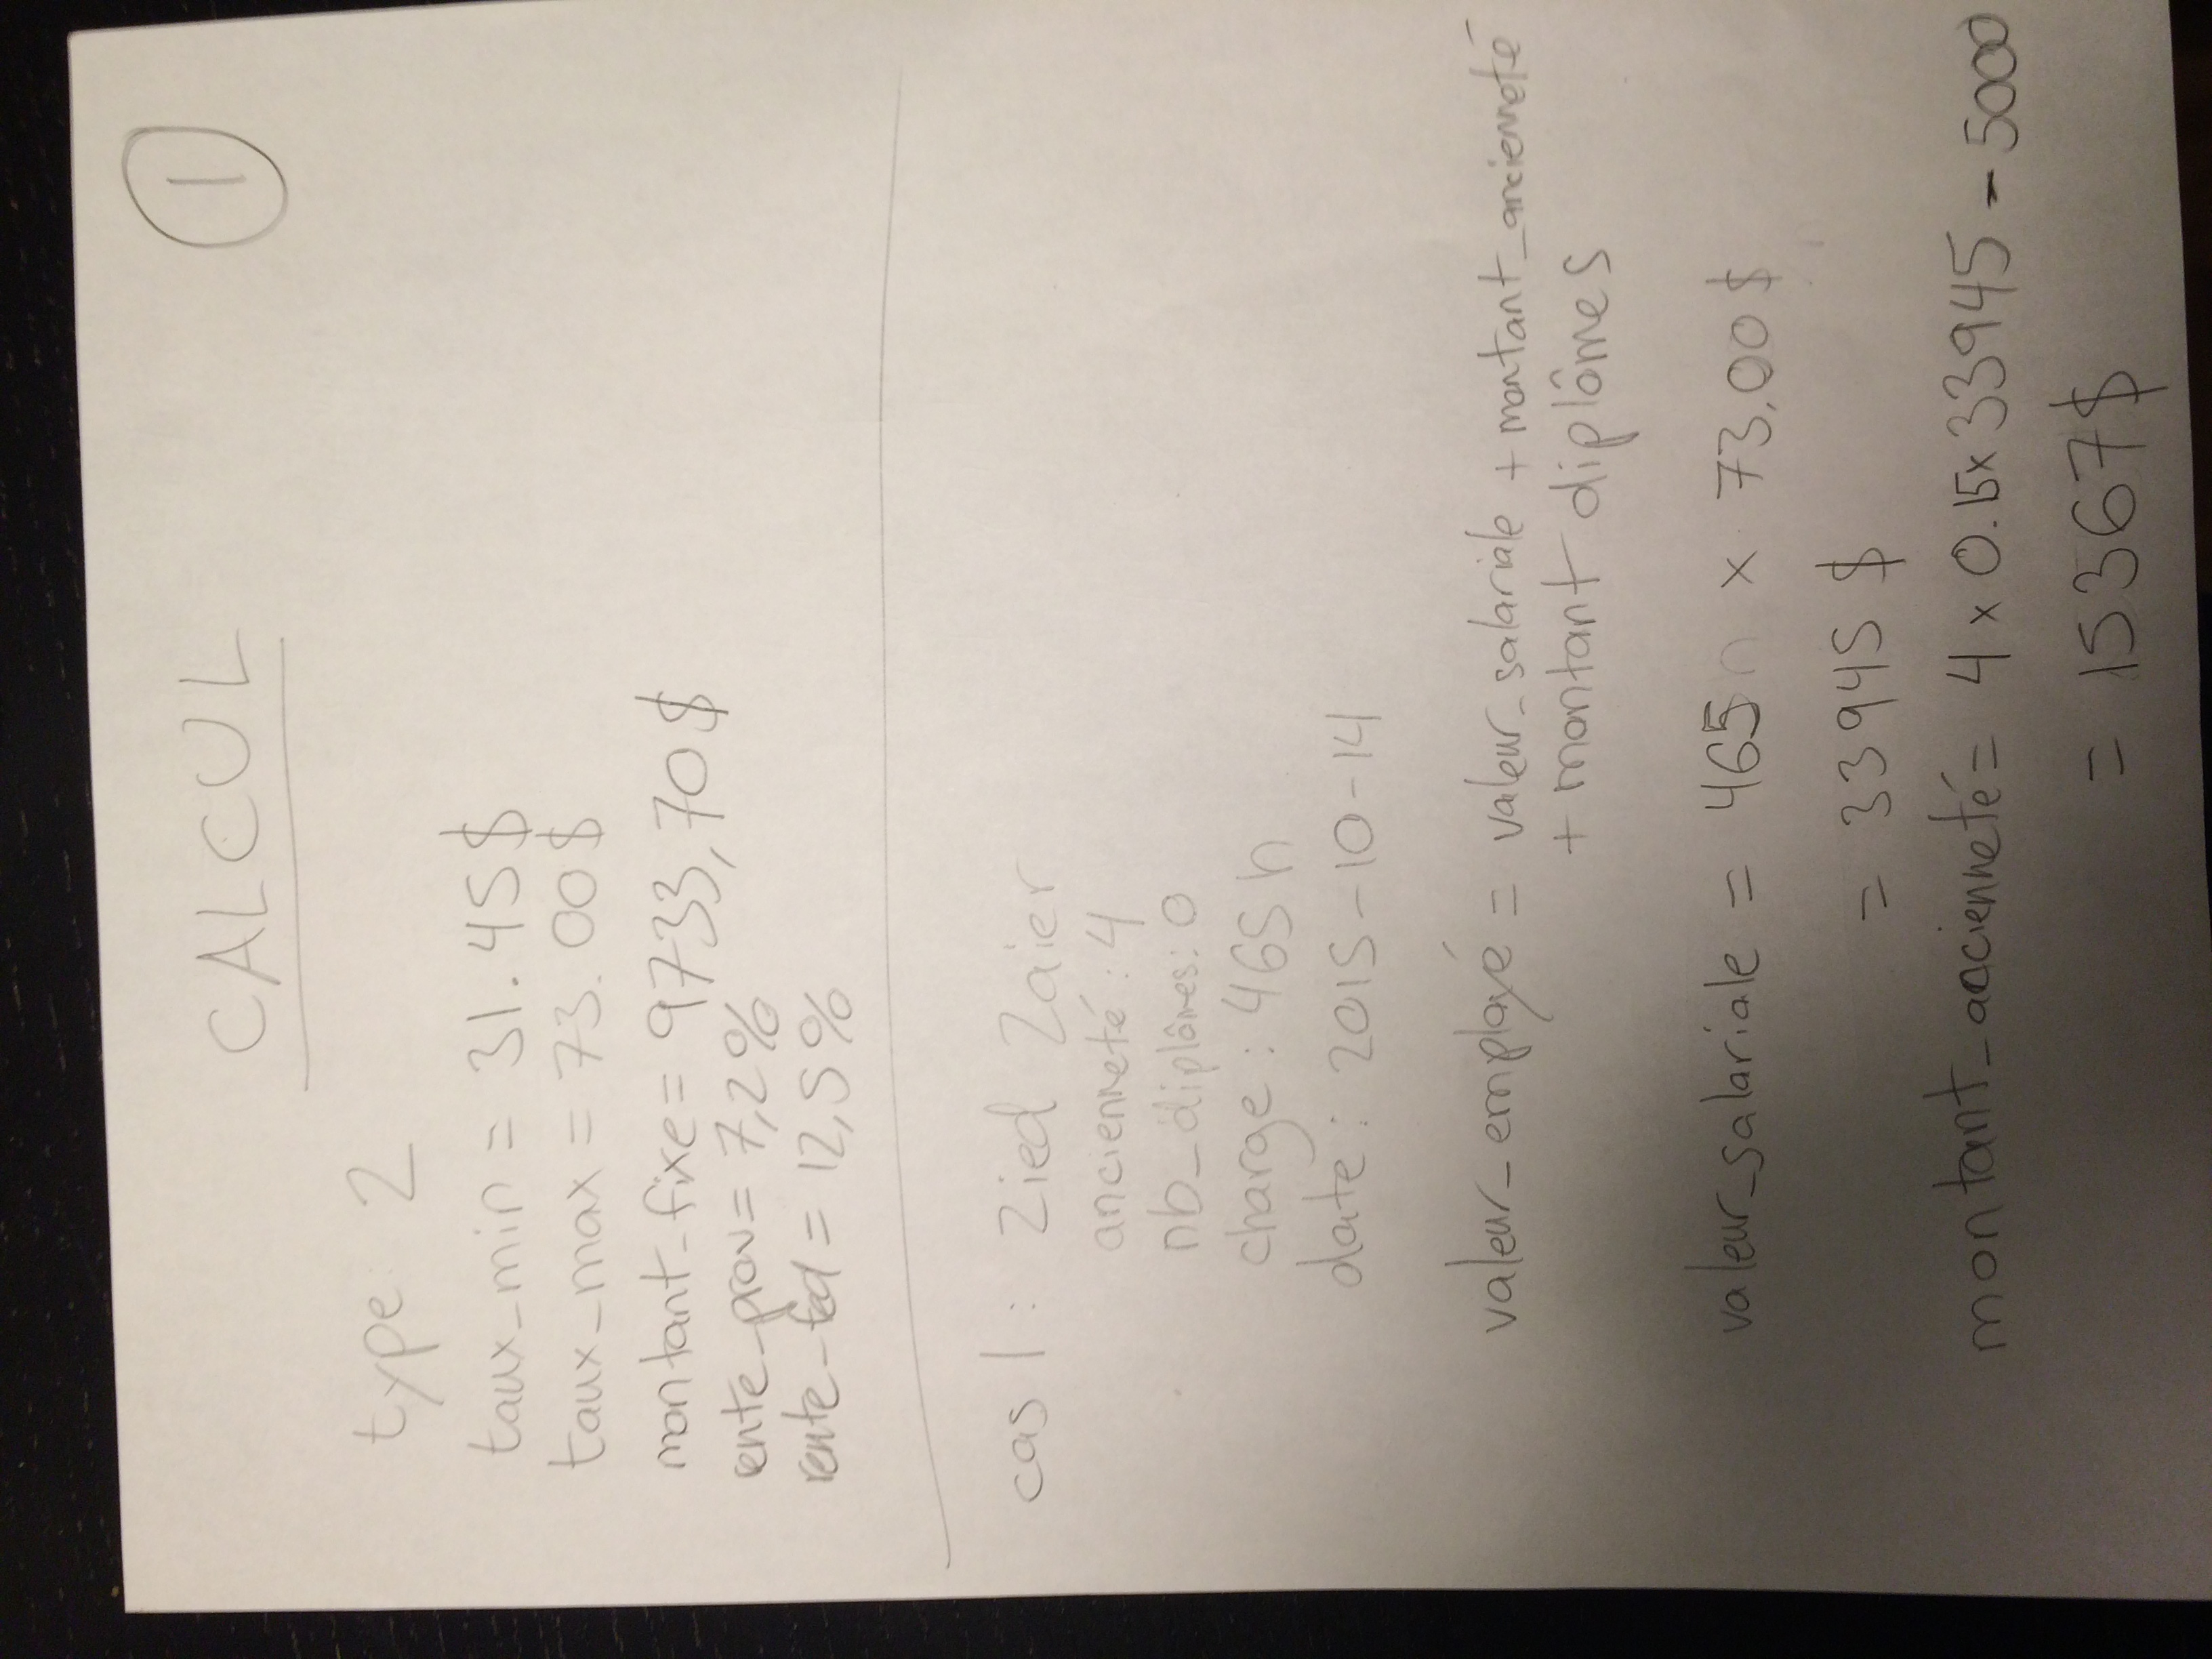 CALCUL
1
type: 2
taux_min = 31.45$
taux_max = 73.00$
montant_fixe = 9733,70$
rente_prov = 7,2%
rente_fed = 12,5%
cas 1 : Zied Zaier
ancienneté : 4
nb_diplômes: 0
charge : 465 h
date : 2015-10-14
valeur_employé = valeur_salariale + montant_ancienneté
+ montant diplômes
valeur_salariale = 465h x 73,00$
= 33945 $
montant_ancienneté = 4 x 0.15 x 33945 - 5000
= 15367$